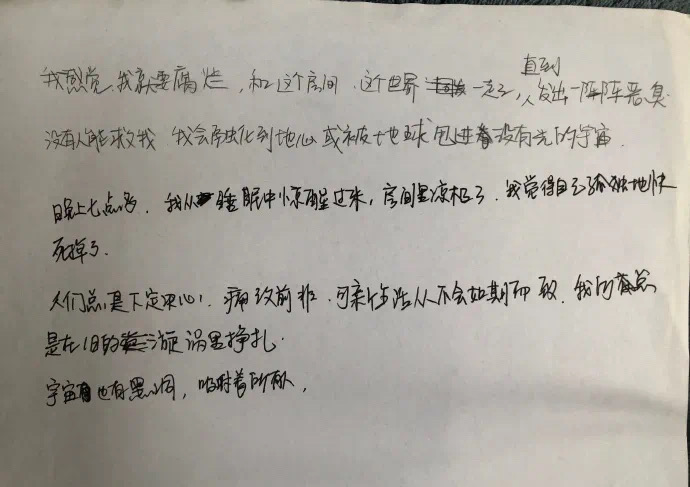 直到
我感觉我就要腐烂,和这个房间、这个世界一起,发出一阵阵恶臭.
没有人能救我 我会融化到地心 或被地球甩进没有光的宇宙.
晚上七点多,我从睡眠中惊醒过来,房间里凉极了.我觉得自己孤独地快
死掉了.
人们总是下定决心,痛改前非.可新生活从不会如期而至.我们总
是在旧的漩涡里挣扎.
宇宙也有黑洞,吸附着所有人,